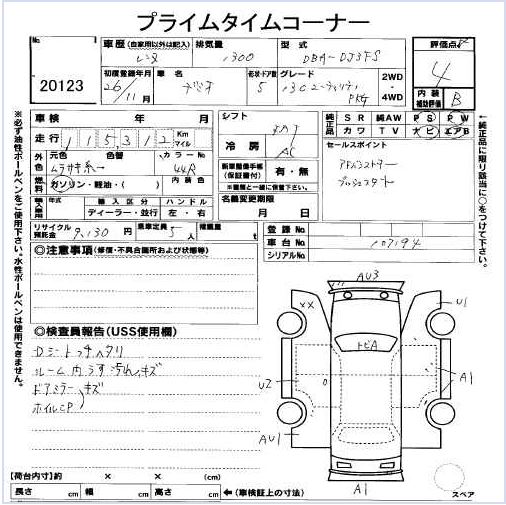 プライムタイムコーナー
No.
20123
車歴(自家用以外は記入)
レンタ
排気量
1300
型式
DBA-DJ3FS
評価点
4
初積登録年月
26/11月
車名
デミオ
形状・ドア数
5
グレード
13C
PKG
2WD
4WD
内装
補助評価
B
車検 年 月
シフト
冷房
AC
純正品
SR 純AW PS PW
カワ TV ナビ エアB
走行 115312 Km
マイル
セールスポイント
アドバンストキー
プッシュスタート
外色 元色
ムラサキ系→
色替
カラーNo
44R
内装色
新車整備手帳
(保証書付)
有・無
※車歴と一緒に保管下さい。
燃料 ガソリン・軽油・( )
輸入車用 年式 輸入区分 ハンドル
ディーラー・並行 左・右
名義変更期限
月 日
リサイクル
預託金
9,130円
乗車定員
5人
積載量
t
登録No
車台No
107194
シリアルNo
◎注意事項(修復・不具合箇所および状態等)
◎検査員報告(USS使用欄)
Dシートコゲ、ヘタリ
ルーム内うす汚れ、キズ
ドアミラーキズ
ホイルCP
AU3
XX
U1
トビA
U2
A1
AU1
AU1
A1
【荷台内寸】約 × × (cm)
長さ cm 幅 cm 高さ cm ←(車検証上の寸法)
スペア
※必ず油性ボールペンをご使用下さい。水性ボールペンは使用できません。
←純正品に限り該当に○をつけて下さい。